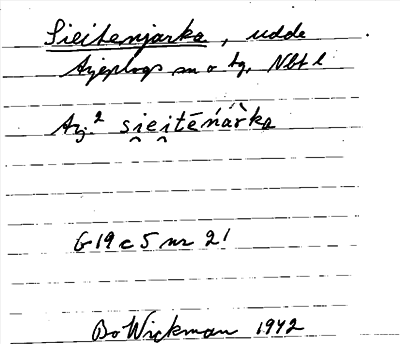 Sieitenjarka, udde
Arjeplogs sn o tg, Nbt l
Arj.² si̯ei̯tēńàŕ̀ka
G 19 c 5 nr 21
Bo Wickman 1942